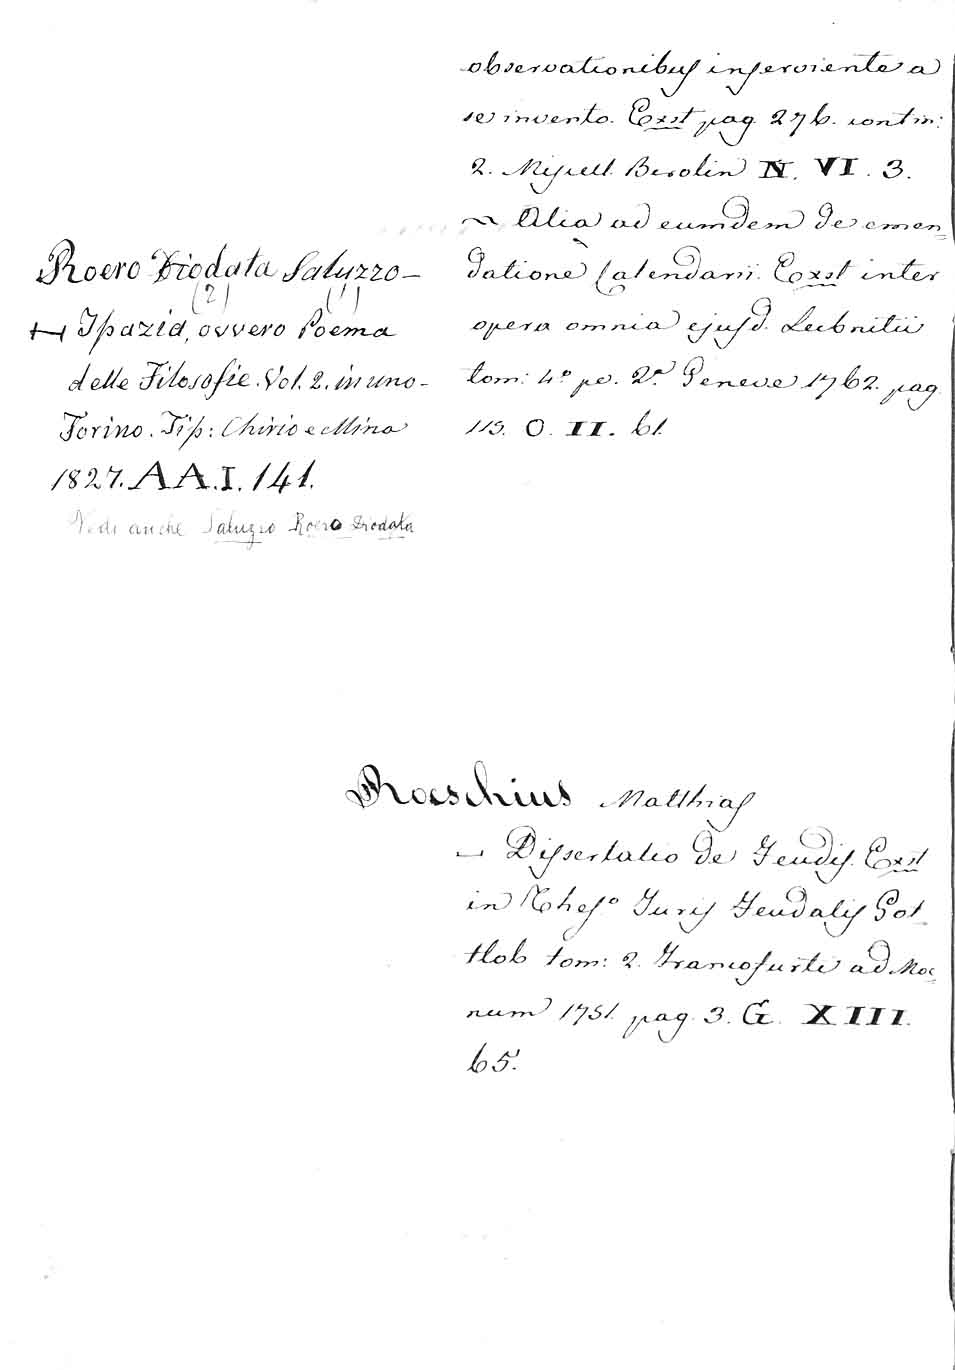 observationibus inserviente a
se invento. Exst pag. 276. contin:
2. Miscell. Berolin N. VI. 3.
~ Alia ad eumdem de emen=
datione Calendarii. Exst inter
opera omnia ejusd. Leibnitii
tom: 4.º pe. 2.ª Geneve 1762. pag.
115. O. II. 61.
Roero Diodata Saluzzo-
(2) (1)
Ipazia, ovvero Poema
delle Filosofie. Vol. 2. in uno-
Torino. Tip: Chirio e Mina
1827. AA. I. 141.
Vedi anche Saluzzo Roero Diodata
Roeschius Matthias
Dissertatio de Feudis. Exst
in Thes.º Juris Feudalis Got=
tlob tom: 2. Francofurti ad Moe=
num 1751. pag. 3. G. XIII.
65.